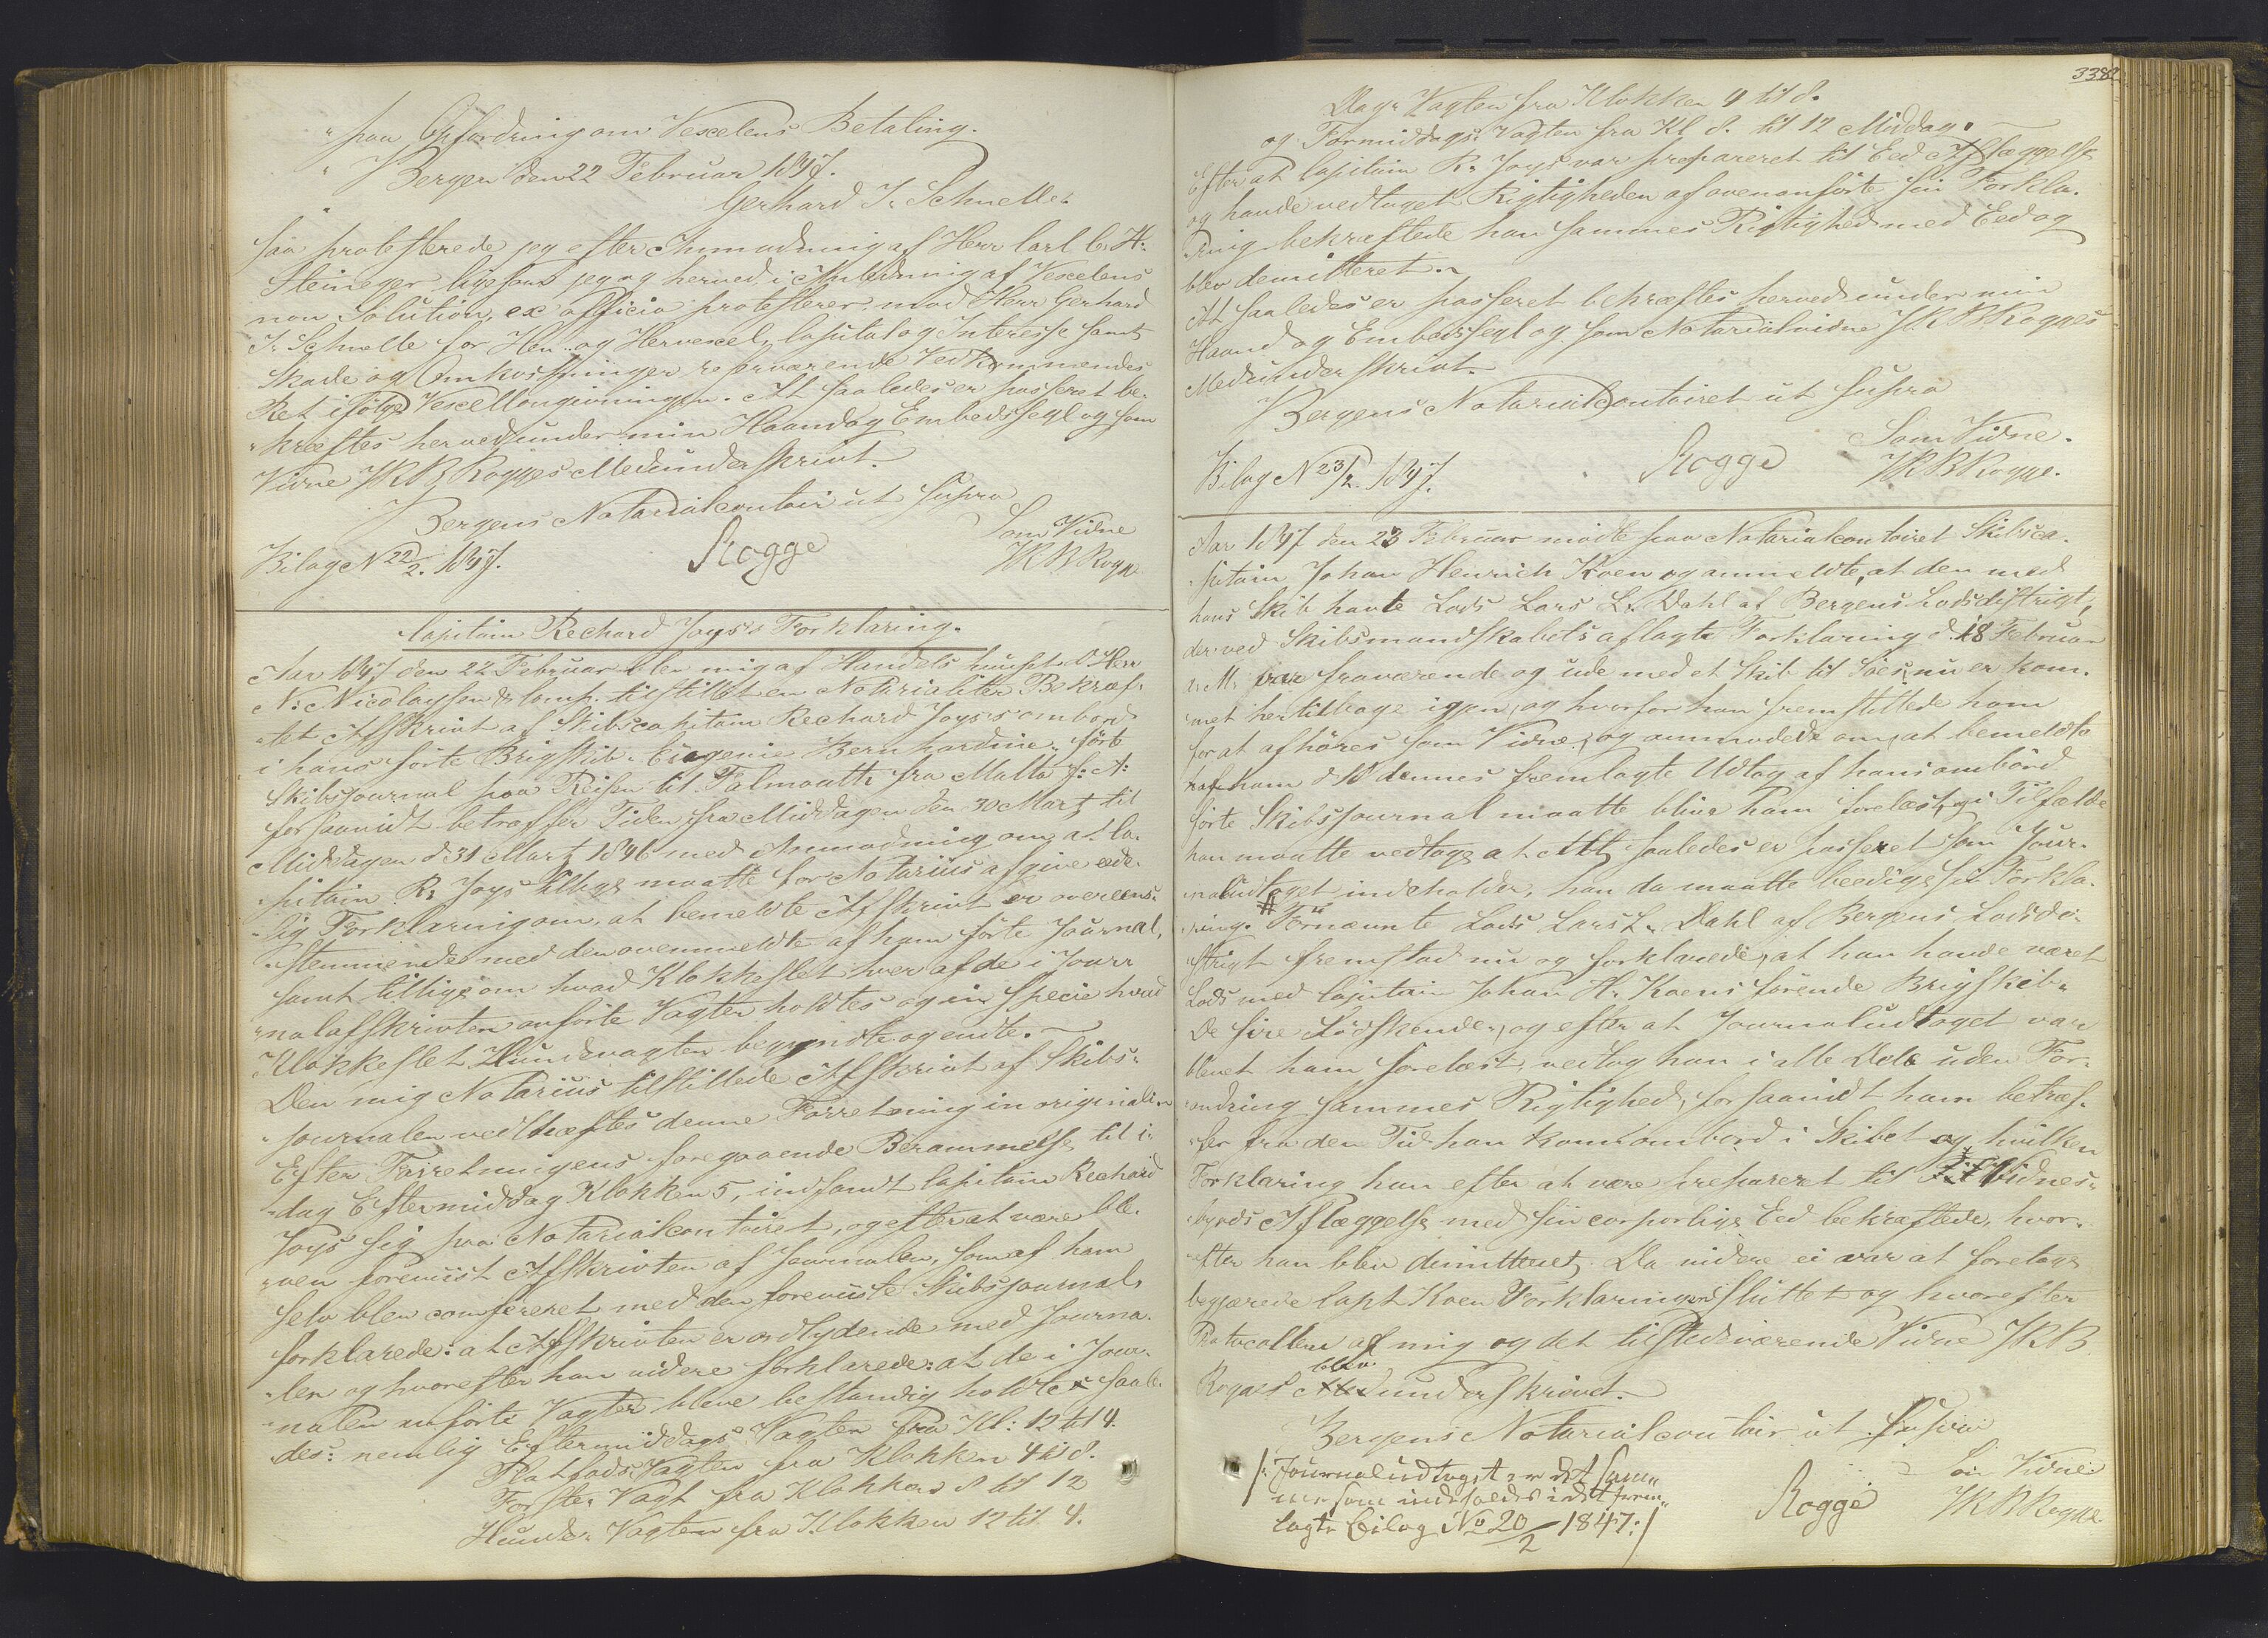 "paa Opfordring om Vexelens Betaling.
" Bergen den 22 Februar 1847.
Gerhard J. Schnelle.
saa protesterede jeg efter Anmodning af Herr Carl C. H:
Steineger ligesom jeg og herved i Anledning af Vexelens
non Solution, ex officio protesterer mod Herr Gerhard
J. Schnelle for Hen- og Hervexel, Capital og Interesse samt
Skade og Omkostninger reserverende Vedkommendes
Ret ifölge Vexellovgivningen. At saaledes er passeret be-
"kræftes herved under min Haand og Embedssegl og som
Vidne J R B Rogges Medunderskrivt.
Bergens Notarialcontoir ut supra
Som Vidne
Bilag N 22/2. 1847.
Rogge
J R B Rogge
Capitain Rechard Joys's Forklaring.
Aar 1847 den 22 Februar blev mig af Handelshuuset d'Herr
N: Nicolaysen & Comp. tilstillet en Notarialiter Bekræf-
"tet Afskrivt af Skibscapitain Rechard Joys's ombord
i hans förte Brigskib "Eugenie Bernhardine" förte
Skibsjournal paa Reisen til Falmouth fra Malta f: A:
forsaavidt betræffer Tiden fra Middagen den 30 Martz til
Middagen d 31 Martz 1846 med Anmodning om, at Ca-
"pitain R: Joys tillige maatte for Notarius afgive eede-
"lig Forklaring om, at bemeldte Afskrivt er overeens-
"stemmende med den ovenmeldte af ham förte Journal,
samt tillige om hvad Klokkeslet hver af de i Jour-
"nalafskrivten anförte Vagter holdtes og in specie hvad
Klokkeslet Hundevagten begyndte og endte. -
Den mig Notarius tilstillede Afskrivt af Skibs-
"journalen vedhæftes denne Forretning in originali.
Efter Forretningens foregaaende Berammelse til i-
"dag Eftermiddag Klokken 5, indfandt Capitain Rechard
Joys sig paa Notarialcontoiret, og efter at være ble-
"ven foreviist Afskrivten af Journalen, som af ham
selv blev confereret med den foreviiste Skibsjournal,
forklarede: at Afskrivten er ordlydende med Journa-
"len og hvorefter han videre forklarede: at de i Jour-
"nalen anförte Vagter bleve bestandig holdte saale-
"des: nemlig Eftermiddags Vagten fra Kl: 12 til 4.
Platfods Vagten fra Klokken 4 til 8.
Förster Vagt fra Klokken 8 til 12
Hunde- Vagten fra Klokken 12 til 4.
338
Dags Vagten fra Klokken 4 til 8.
og Formiddags Vagten fra Kl 8. til 12 Middag.
Efter at Capitain R: Joys var præpareret til Eeds Aflæggelse
og havde vedtaget Rigtigheden af ovenanförte sin Forkla-
"ring bekræftede han sammes Rigtighed med Eed og
blev demitteret.
At saaledes er passeret bekræftes herved under min
Haand og Embedssegl og som Notarialvidne J R B. Rogges
Medunderskrivt.
Bergens Notarialcontoiret ut supra
Som Vidne.
Bilag N 23/2. 1847.
Rogge
J R B Rogge.
Aar 1847 den 23 Februar mödte paa Notarialcontoiret Skibsca-
"pitain Johan Henrich Koen og anmeldte, at den med
hans Skib havte Lods Lars L. Dahl af Bergens Lodsdistrigt,
der ved Skibsmandskabets aflagte Forklaring d. 18 Februar
d. M. var fraværende og ude med et Skib til Söes, nu er kom-
"met hertilbage igjen, og hvorfor han fremstillede ham
for at afhöres som Vidne, og anmodede om, at bemeldte
af ham d 18 dennes fremlagte Udtog af hans ombord
förte Skibsjournal maatte blive ham forelæst, og i Tilfælde
han maatte vedtage at Alt saaledes er passeret som Jour-
"naludtoget indeholder, han da maatte beedige sin Forkla-
"ring. # Fornævnte Lods Lars L. Dahl af Bergens Lodsdi-
strigt fremstod nu og forklarede, at han havde været
Lods med Capitain Johan H. Koens förende Brigskib "
De fire Södskende", og efter at Journaludtoget var
blevet ham forelæst, vedtog han i alle Dele uden For-
"andring sammes Rigtighed, forsaavidt ham betræf-
"fer fra den Tid han kom ombord i Skibet og hvilken
Forklaring han efter at være præpareret til Vidnes-
"byrds Aflæggelse med sin corporlige Eed bekræftede, hvor-
"efter han blev dimitteret. Da videre ei var at foretage
begjærede Capt Koen Forklaringen sluttet og hvorefter
Protocollen af mig og det tilstedeværende Vidne J R B.
Rogges blev underskrevet.
Bergens Notarialcontoir ut supra
/: Journaludtoget er det sam-
me som indeholdes i det frem-
lagte Bilag No 20/2 1847:/
Som Vidne
Rogge
J R B Rogge.